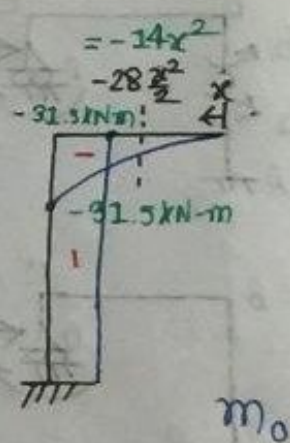 = -14x²
-28 x²/2
x
-31.5kNm
-
-31.5kN-m
1
m₀